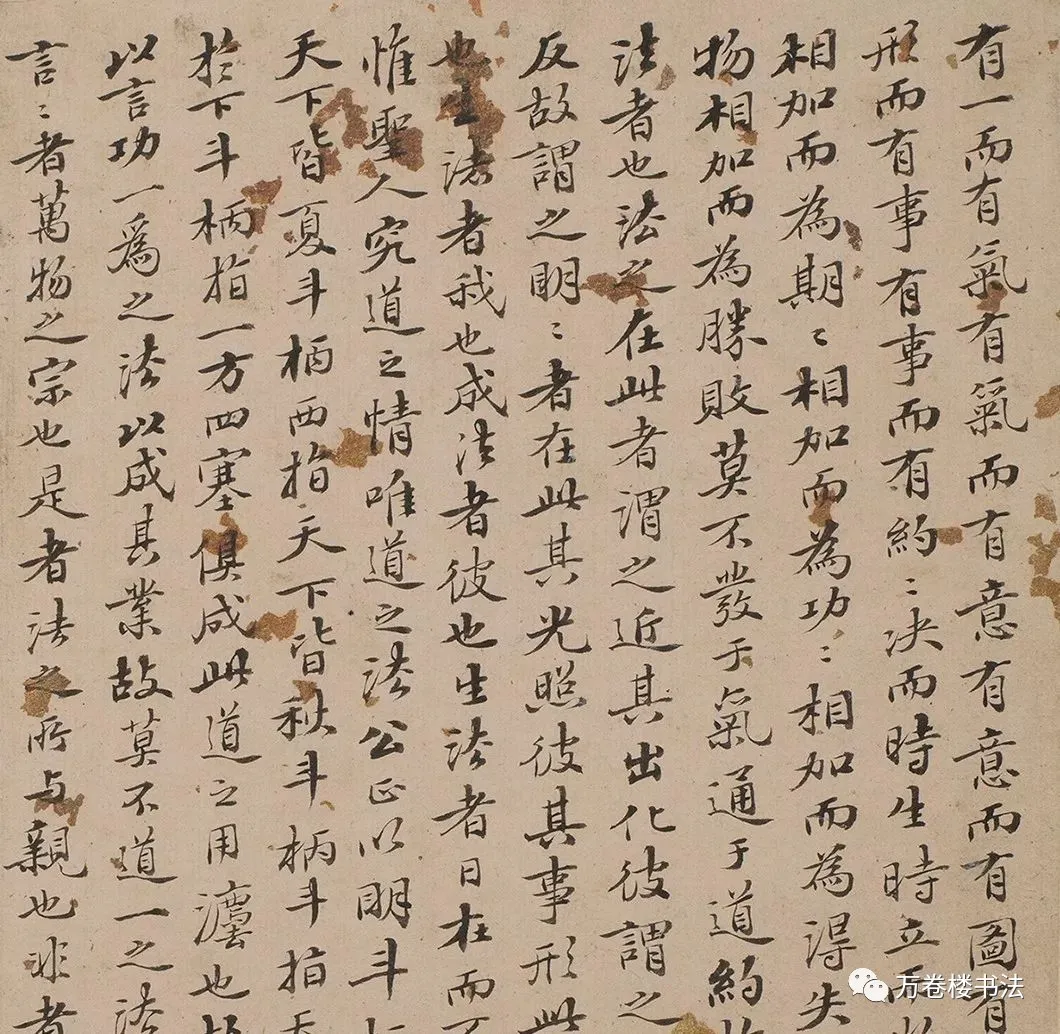 有一而有氣有氣而有意有意而有圖有
形而有事有事而有約〻决而時生時立而
相加而為期〻相加而為功〻相加而為得失
物相加而為勝敗莫不發于氣通于道約
法者也法之在此者謂之近其出化彼謂之
反故謂之明〻者在此其光照彼其事形此
也生法者我也成法者彼也生法者日在而不
惟聖人究道之情唯道之法公正以明斗
天下皆夏斗柄西指天下皆秋斗柄斗指天
於下斗柄指一方四塞俱成此道之用灋也故
以言功一爲之法以成其業故莫不道一之法
言〻者萬物之宗也是者法之所与親也非者
万卷楼书法